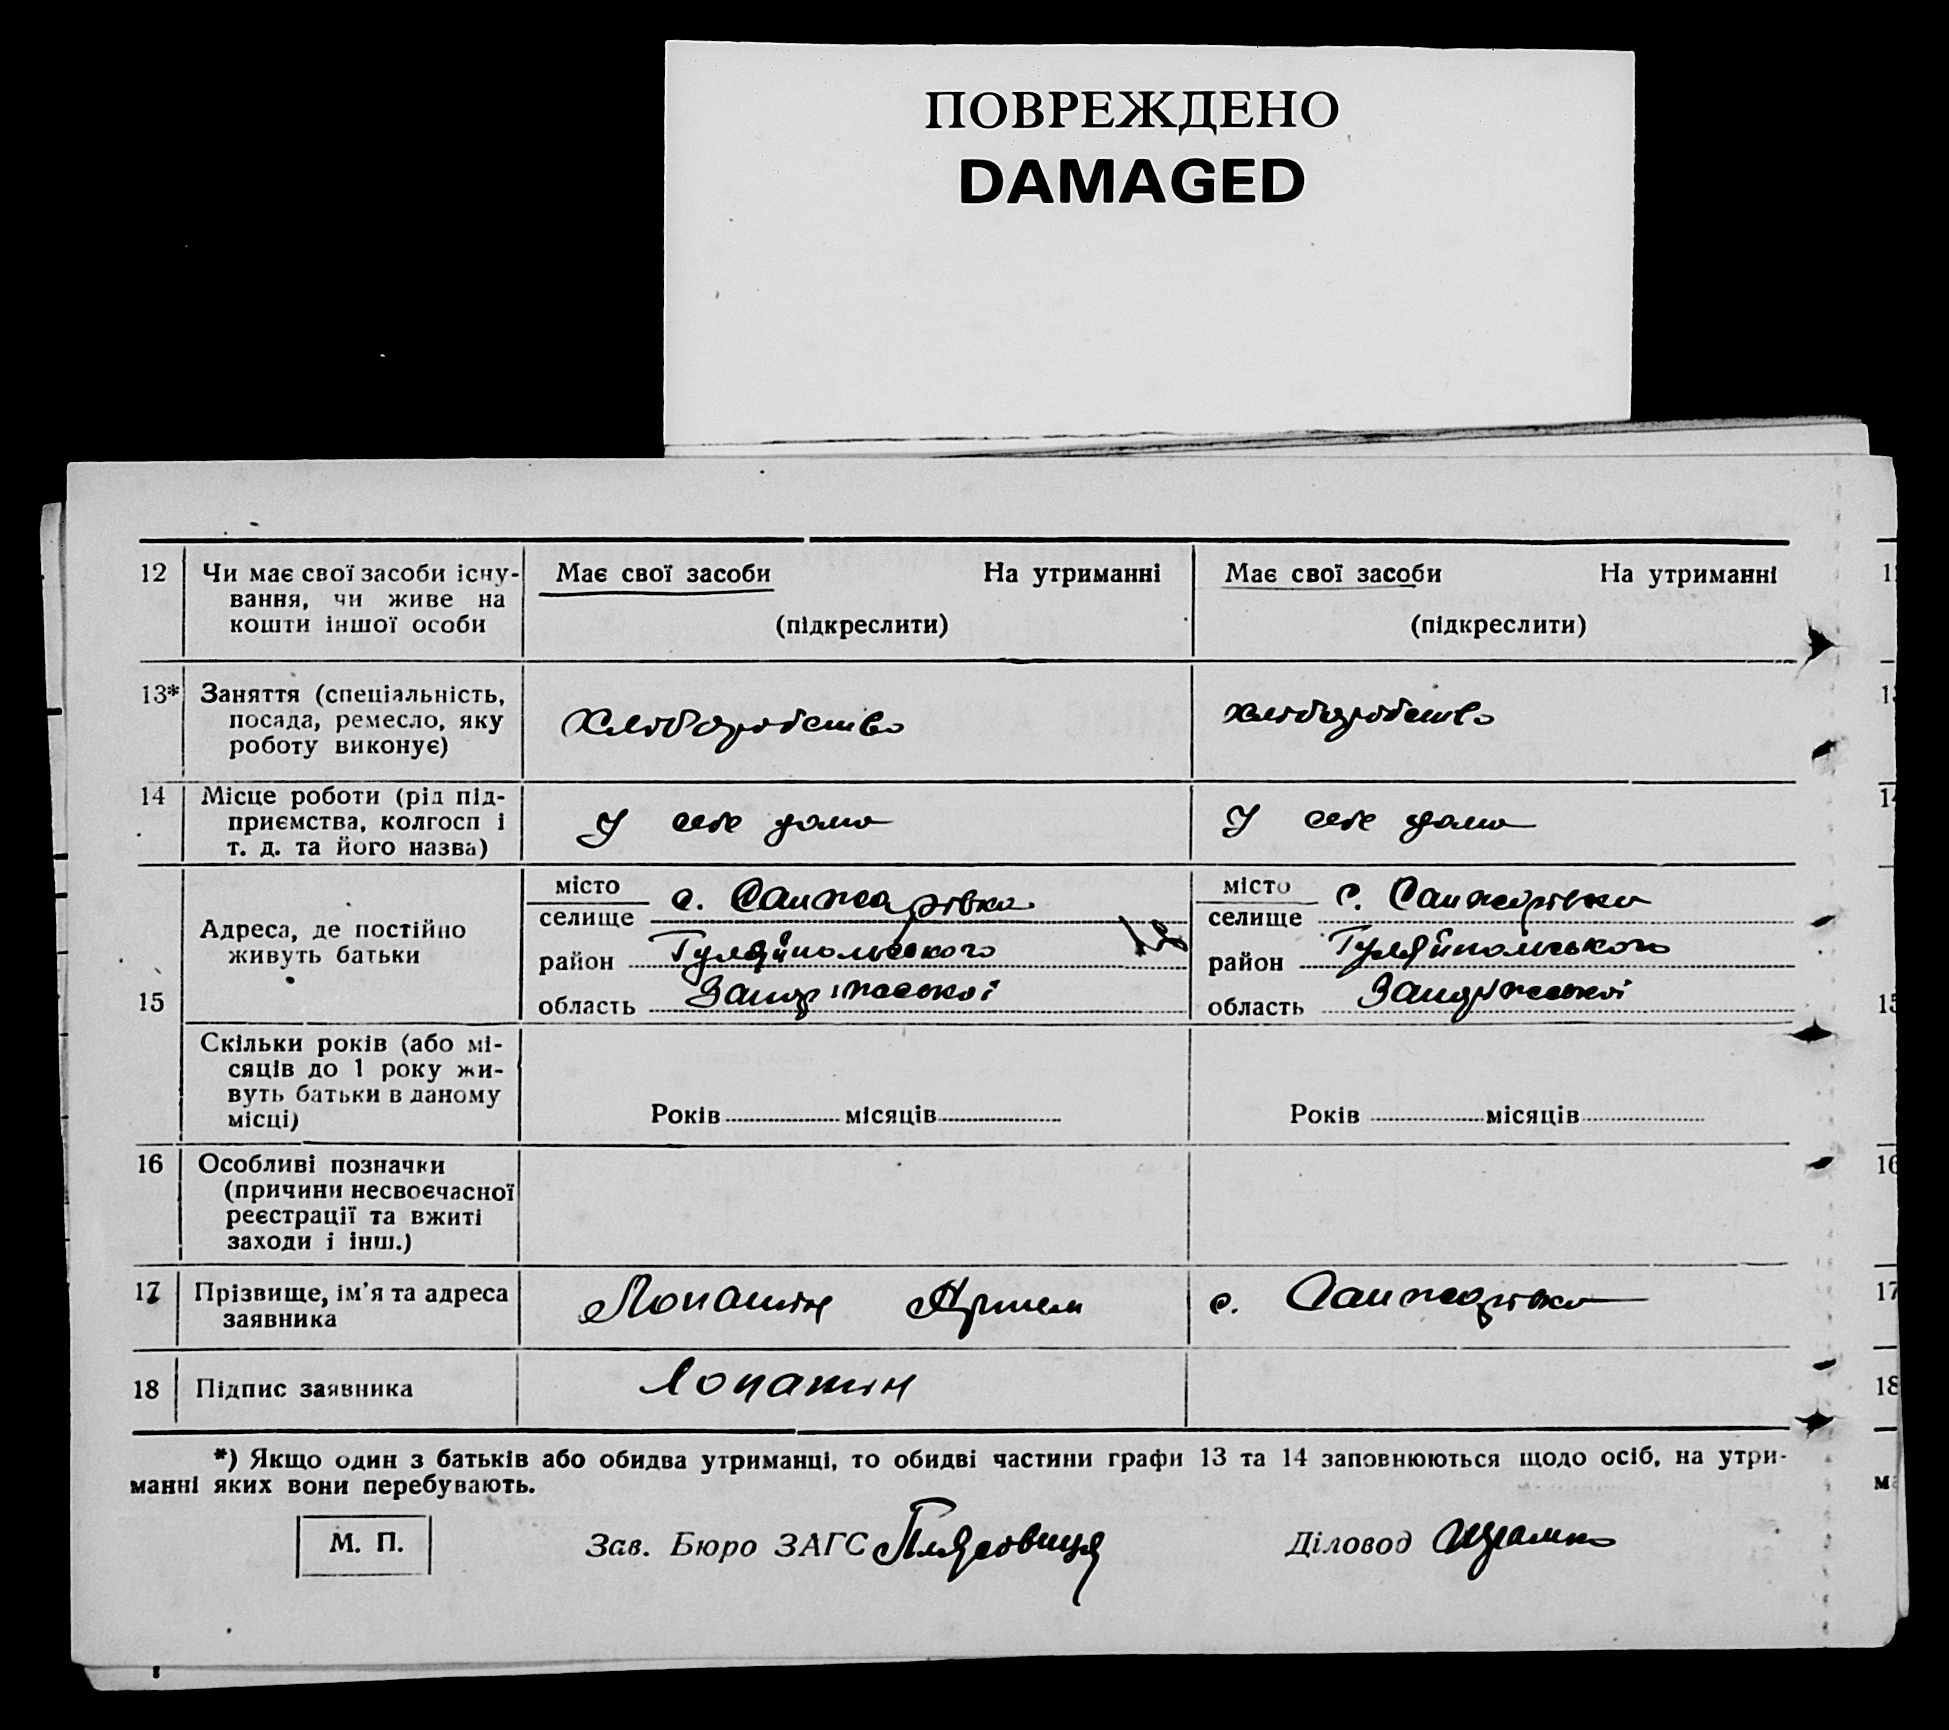 ПОВРЕЖДЕНО
DAMAGED
12 Чи має свої засоби існу- Має свої засоби На утриманні Має свої засоби На утриманні
вання, чи живе на
кошти іншої особи (підкреслити) (підкреслити)
13* Заняття (спеціальність,
посада, ремесло, яку хліборобство хліборобство
роботу виконує)
14 Місце роботи (рід під-
приємства, колгосп і У себе дома У себе дома
т. д. та його назва)
місто с. Санжарівка місто с. Санжарівка
селище селище
Адреса, де постійно
живуть батьки район Гуляйпольського район Гуляйпольського
15 область Запорізької область Запорізької
Скільки років (або мі-
сяців до 1 року жи-
вуть батьки в даному
місці) Років місяців Років місяців
16 Особливі позначки
(причини несвоєчасної
реєстрації та вжиті
заходи і інш.)
17 Прізвище, ім'я та адреса Лопатін с. Санжарівка
заявника
18 Підпис заявника Лопатін
*) Якщо один з батьків або обидва утриманці, то обидві частини графи 13 та 14 заповнюються щодо осіб, на утри-
манні яких вони перебувають.
М. П. Зав. Бюро ЗАГС Діловод